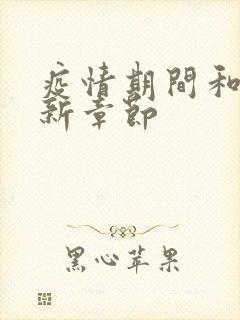 疫情期間和
新章節
黑心苹果